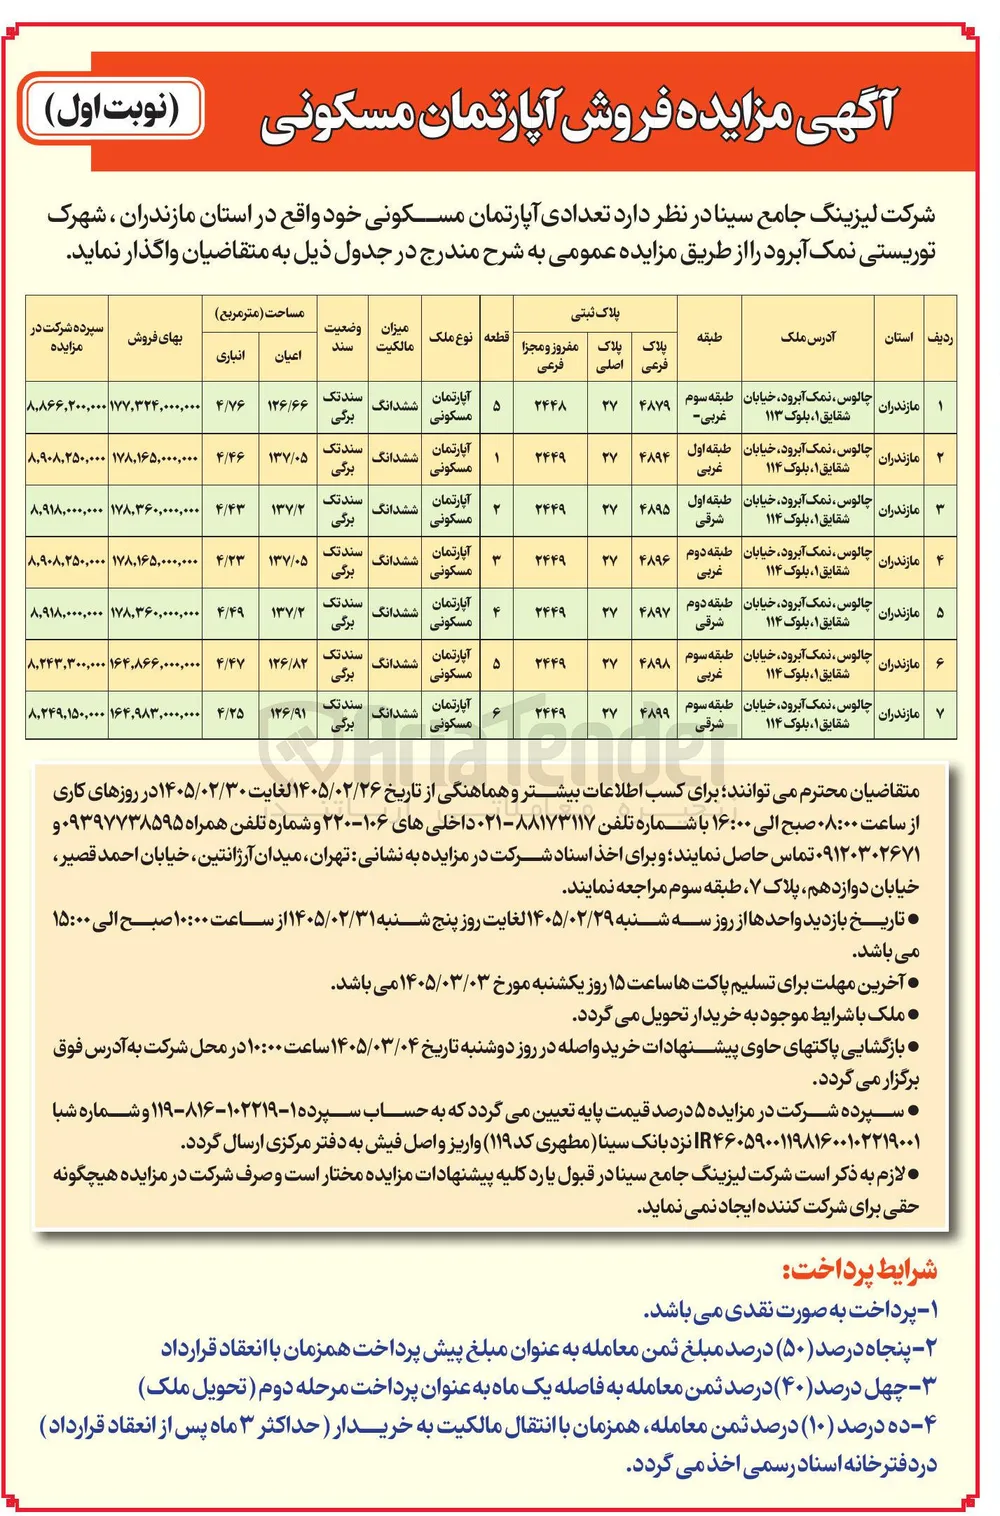 آگهی مزایده فروش آپارتمان مسکونی
(نوبت اول)
شرکت لیزینگ جامع سینا در نظر دارد تعدادی آپارتمان مسکونی خود واقع در استان مازندران ، شهرک
توریستی نمک آبرود را از طریق مزایده عمومی به شرح مندرج در جدول ذیل به متقاضیان واگذار نماید.
ردیف | استان | آدرس ملک | طبقه | پلاک ثبتی | قطعه | نوع ملک | میزان مالکیت | وضعیت سند | مساحت (مترمربع) | بهای فروش | سپرده شرکت در مزایده
پلاک فرعی | پلاک اصلی | مفروز و مجزا فرعی | اعیان | انباری
۱ | مازندران | چالوس، نمک آبرود، خیابان شقایق۱، بلوک ۱۱۳ | طبقه سوم غربی- | ۴۸۷۹ | ۲۷ | ۲۴۴۸ | ۵ | آپارتمان مسکونی | ششدانگ | سند تک برگی | ۱۲۶/۶۶ | ۴/۷۶ | ۱۷۷,۳۲۴,۰۰۰,۰۰۰ | ۸,۸۶۶,۲۰۰,۰۰۰
۲ | مازندران | چالوس، نمک آبرود، خیابان شقایق۱، بلوک ۱۱۴ | طبقه اول غربی | ۴۸۹۴ | ۲۷ | ۲۴۴۹ | ۱ | آپارتمان مسکونی | ششدانگ | سند تک برگی | ۱۳۷/۰۵ | ۴/۴۶ | ۱۷۸,۱۶۵,۰۰۰,۰۰۰ | ۸,۹۰۸,۲۵۰,۰۰۰
۳ | مازندران | چالوس، نمک آبرود، خیابان شقایق۱، بلوک ۱۱۴ | طبقه اول شرقی | ۴۸۹۵ | ۲۷ | ۲۴۴۹ | ۲ | آپارتمان مسکونی | ششدانگ | سند تک برگی | ۱۳۷/۲ | ۴/۴۳ | ۱۷۸,۳۶۰,۰۰۰,۰۰۰ | ۸,۹۱۸,۰۰۰,۰۰۰
۴ | مازندران | چالوس، نمک آبرود، خیابان شقایق۱، بلوک ۱۱۴ | طبقه دوم غربی | ۴۸۹۶ | ۲۷ | ۲۴۴۹ | ۳ | آپارتمان مسکونی | ششدانگ | سند تک برگی | ۱۳۷/۰۵ | ۴/۲۳ | ۱۷۸,۱۶۵,۰۰۰,۰۰۰ | ۸,۹۰۸,۲۵۰,۰۰۰
۵ | مازندران | چالوس، نمک آبرود، خیابان شقایق۱، بلوک ۱۱۴ | طبقه دوم شرقی | ۴۸۹۷ | ۲۷ | ۲۴۴۹ | ۴ | آپارتمان مسکونی | ششدانگ | سند تک برگی | ۱۳۷/۲ | ۴/۴۹ | ۱۷۸,۳۶۰,۰۰۰,۰۰۰ | ۸,۹۱۸,۰۰۰,۰۰۰
۶ | مازندران | چالوس، نمک آبرود، خیابان شقایق۱، بلوک ۱۱۴ | طبقه سوم غربی | ۴۸۹۸ | ۲۷ | ۲۴۴۹ | ۵ | آپارتمان مسکونی | ششدانگ | سند تک برگی | ۱۲۶/۸۲ | ۴/۴۷ | ۱۶۴,۸۶۶,۰۰۰,۰۰۰ | ۸,۲۴۳,۳۰۰,۰۰۰
۷ | مازندران | چالوس، نمک آبرود، خیابان شقایق۱، بلوک ۱۱۴ | طبقه سوم شرقی | ۴۸۹۹ | ۲۷ | ۲۴۴۹ | ۶ | آپارتمان مسکونی | ششدانگ | سند تک برگی | ۱۲۶/۹۱ | ۴/۲۵ | ۱۶۴,۹۸۳,۰۰۰,۰۰۰ | ۸,۲۴۹,۱۵۰,۰۰۰
AriaTender
متقاضیان محترم می توانند؛ برای کسب اطلاعات بیشتر و هماهنگی از تاریخ ۱۴۰۵/۰۲/۲۶ لغایت ۱۴۰۵/۰۲/۳۰ در روزهای کاری
از ساعت ۰۸:۰۰ صبح الی ۱۶:۰۰ با شماره تلفن ۸۸۱۷۳۱۱۷-۰۲۱ داخلی های ۱۰۶-۲۲۰ و شماره تلفن همراه ۰۹۳۹۷۷۳۸۵۹۵ و
۰۹۱۲۰۳۰۲۶۷۱ تماس حاصل نمایند؛ و برای اخذ اسناد شرکت در مزایده به نشانی: تهران ، میدان آرژانتین ، خیابان احمد قصیر ،
خیابان دوازدهم ، پلاک ۷، طبقه سوم مراجعه نمایند.
● تاریخ بازدید واحدها از روز سه شنبه ۱۴۰۵/۰۲/۲۹ لغایت روز پنج شنبه ۱۴۰۵/۰۲/۳۱ از ساعت ۱۰:۰۰ صبح الی ۱۵:۰۰
می باشد.
● آخرین مهلت برای تسلیم پاکت ها ساعت ۱۵ روز یکشنبه مورخ ۱۴۰۵/۰۳/۰۳ می باشد.
● ملک با شرایط موجود به خریدار تحویل می گردد.
● بازگشایی پاکتهای حاوی پیشنهادات خرید واصله در روز دوشنبه تاریخ ۱۴۰۵/۰۳/۰۴ ساعت ۱۰:۰۰ در محل شرکت به آدرس فوق
برگزار می گردد.
● سپرده شرکت در مزایده ۵ درصد قیمت پایه تعیین می گردد که به حساب سپرده ۱-۱۰۲۲۱۹-۸۱۶-۱۱۹ و شماره شبا
IR۴۶۰۵۹۰۰۱۱۹۸۱۶۰۰۱۰۲۲۱۹۰۰۱ نزد بانک سینا (مطهری کد ۱۱۹) واریز و اصل فیش به دفتر مرکزی ارسال گردد.
● لازم به ذکر است شرکت لیزینگ جامع سینا در قبول یا رد کلیه پیشنهادات مزایده مختار است و صرف شرکت در مزایده هیچگونه
حقی برای شرکت کننده ایجاد نمی نماید.
شرایط پرداخت:
۱-پرداخت به صورت نقدی می باشد.
۲-پنجاه درصد (۵۰) درصد مبلغ ثمن معامله به عنوان مبلغ پیش پرداخت همزمان با انعقاد قرارداد
۳-چهل درصد (۴۰) درصد ثمن معامله به فاصله یک ماه به عنوان پرداخت مرحله دوم ( تحویل ملک)
۴-ده درصد (۱۰) درصد ثمن معامله، همزمان با انتقال مالکیت به خریدار ( حداکثر ۳ ماه پس از انعقاد قرارداد )
در دفترخانه اسناد رسمی اخذ می گردد.